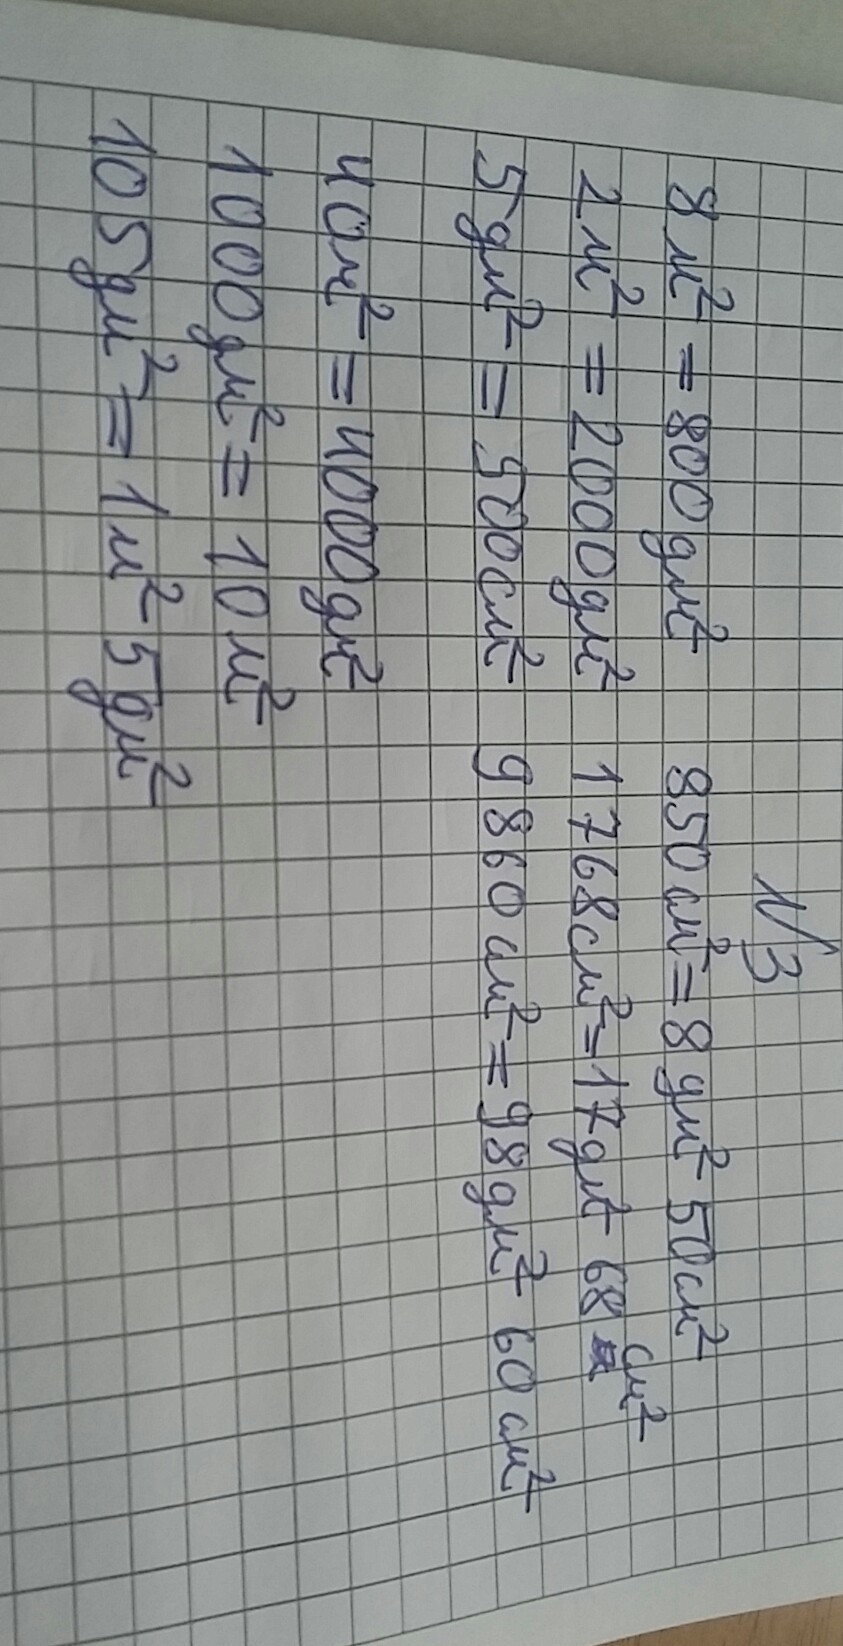 №3
8 м² = 800 дм² 850 см² = 8 дм² 50 см²
2 м² = 2000 дм² 1768 см² = 17 дм² 68 см²
5 дм² = 500 см² 9860 см² = 98 дм² 60 см²
40 м² = 4000 дм²
1000 дм² = 10 м²
105 дм² = 1 м² 5 дм²